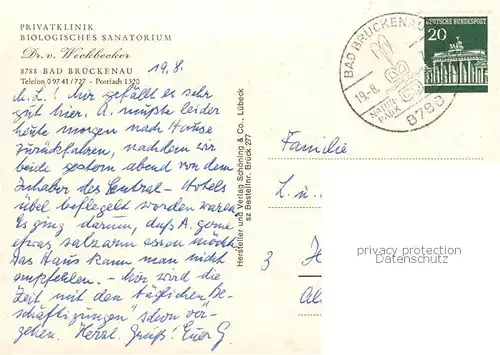 PRIVATKLINIK
BIOLOGISCHES SANATORIUM
Dr. v. Weckbecker
8788 BAD BRÜCKENAU
Telefon 0 97 41 / 727 - Postfach 1320
19.8.
M. L.! Mir gefällt es sehr
gut hier. A. mußte leider
heute morgen nach Hause
zurückfahren, nachdem wir
beide gestern abend von dem
Inhaber des Central-Hotels
übel beflegelt worden waren.
Es ging darum, daß A. gerne
etwas salzarm essen möchte.
Das Haus kann man nicht
empfehlen. – Mir wird die
Zeit mit den täglichen "Be-
schäftigungen" schon ver-
gehen. Herzl. Grüße! Euer G.
Hersteller und Verlag Schöning & Co., Lübeck
sz Bestellnr. Brück 27
BAD BRÜCKENAU
19.-8.
NATUR-
PARK
8788
20
DEUTSCHE BUNDESPOST
Familie
L. u.
3
privacy protection
Datenschutz